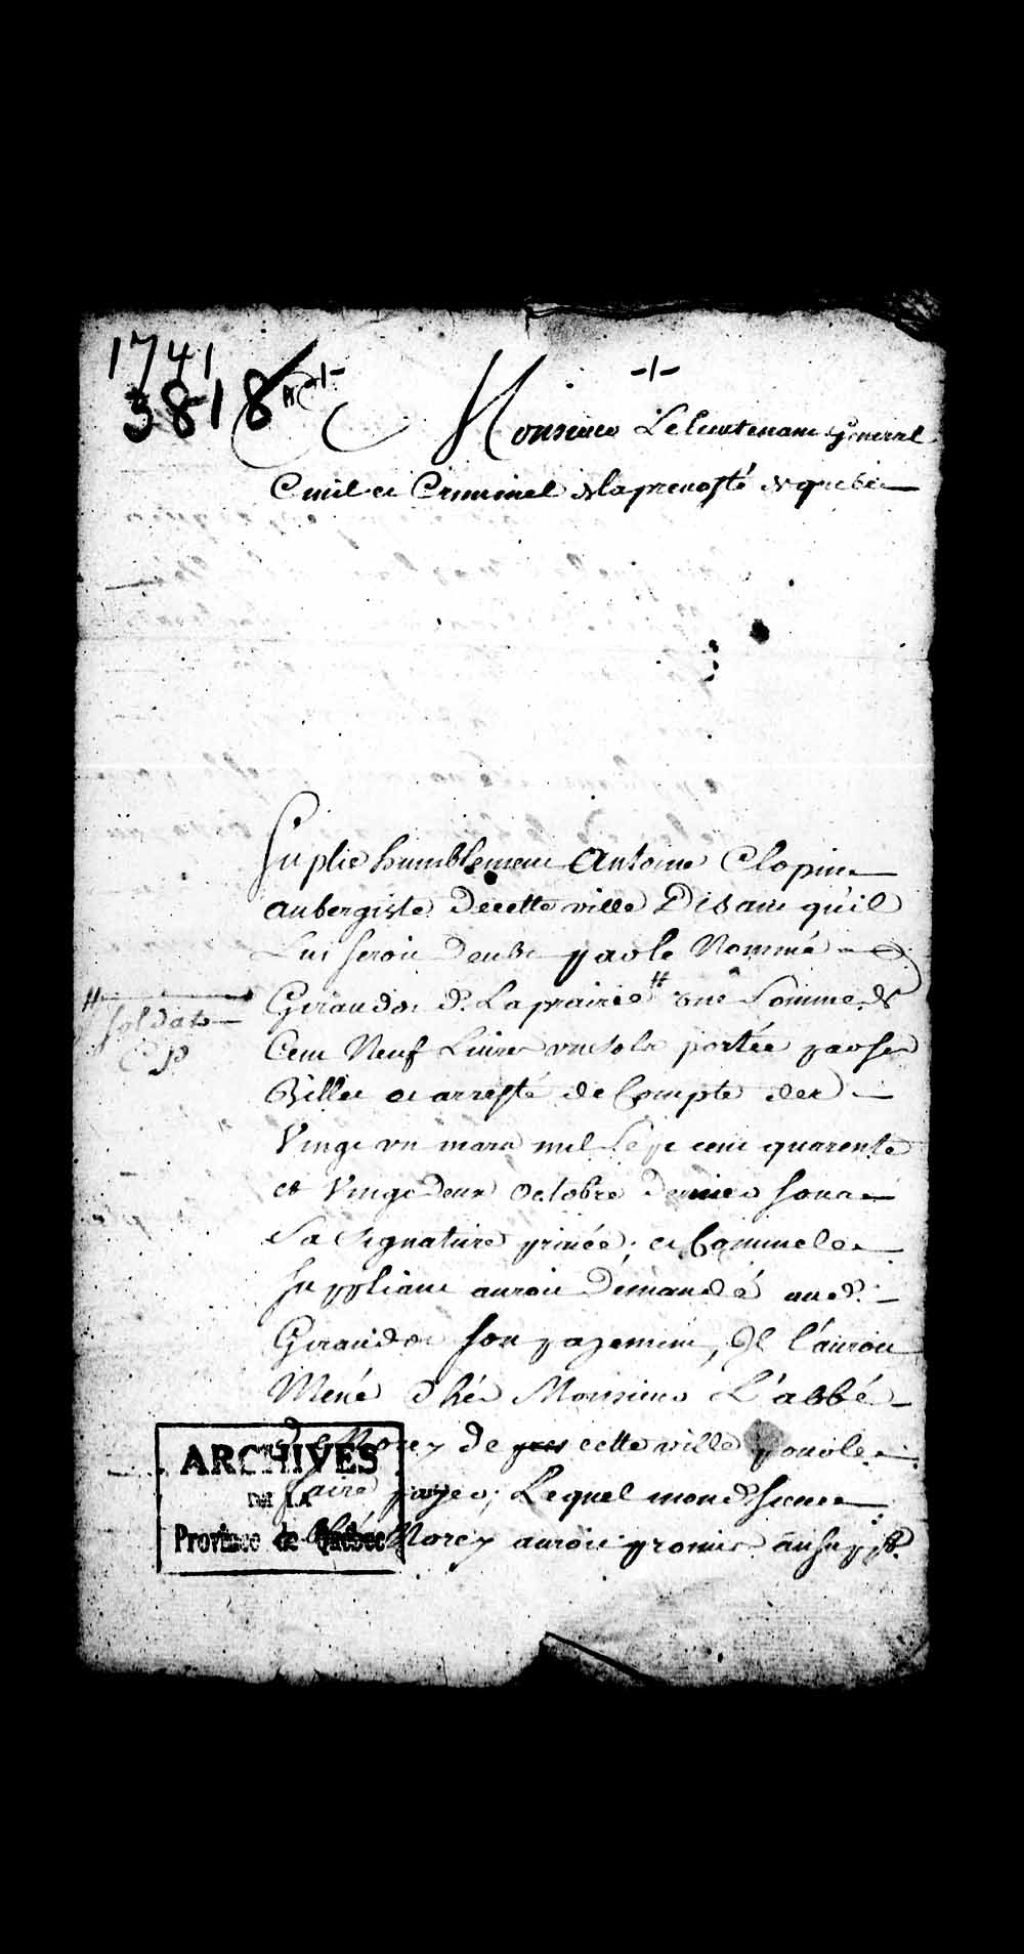 1741
3818
A Monsieur Le lieutenant general
Civil et Criminel de la prevosté de quebec
Suplie humblement Antoine Clopin
aubergiste de cette ville Disant qu'il
Lui seroit deub par le Nommé
Giraudet d. Laprairie # une Somme de
# soldat
Cent Neuf Livres un sols portée par ses
Billet et arresté de Compte des
Vingt un mars mil sept cent quarente
et Vingt deux octobre dernier sous
Sa signature privée; et Comme le
supliant auroit Demandé aud.
Giraudet son payement, Il l'auroit
Mené Chés Monsieur L'abbé
de cette ville pour le
faire payer; Lequel mond. sieur
Morey auroit promis au supt.
ARCHIVES
DE LA
Province de Québec